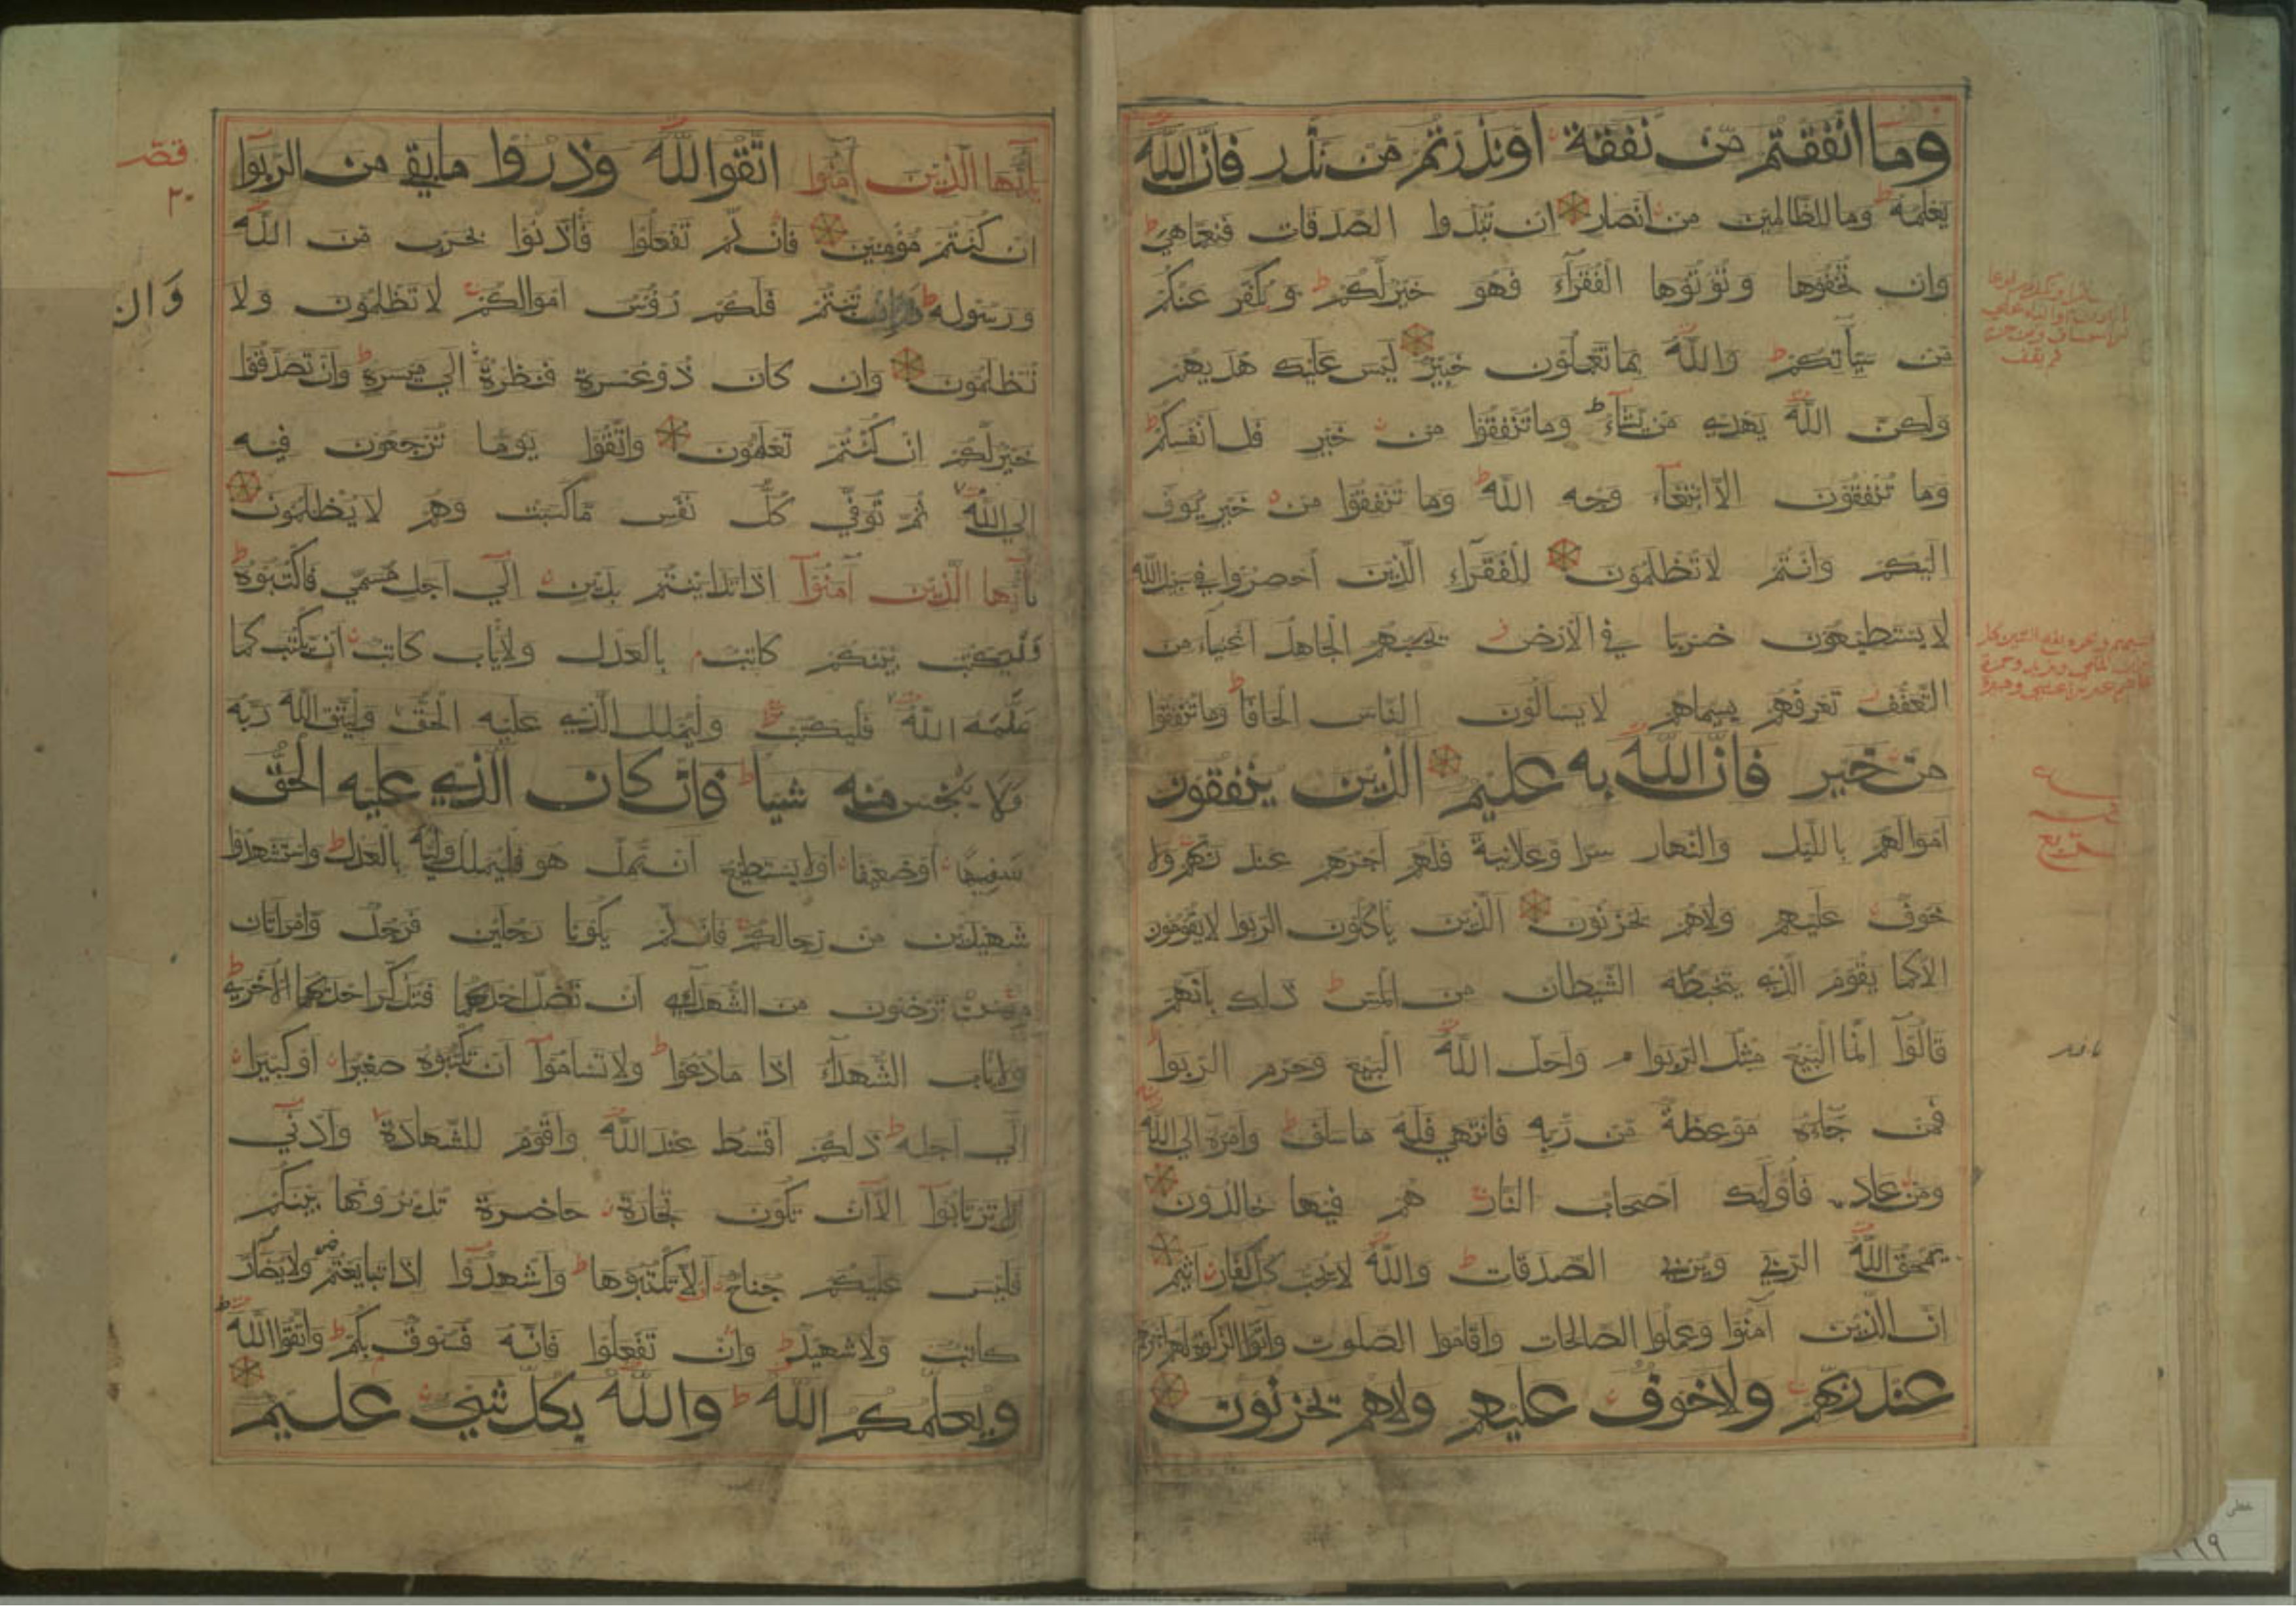 وما انفقتم من نفقة اونذرتم من نذر فان الله
يعلمه وما للظالمين من انصار ان تبدوا الصدقات فنعماهي
وان تخفوها وتؤتوها الفقرآء فهو خيرلكم ويكفر عنكم
من سيأتكم والله بما تعملون خبير ليس عليك هديهم
ولكن الله يهدي من يشآء وما تنفقوا من خير فلأنفسكم
وما تنفقون الا ابتغآء وجه الله وما تنفقوا من خير يوف
اليكم وانتم لا تظلمون للفقرآء الذين احصروا في سبيل الله
لا يستطيعون ضربا في الارض يحسبهم الجاهل اغنيآء من
التعفف تعرفهم بسيماهم لا يسألون الناس الحافا وما تنفقوا
من خير فان الله به عليم الذين ينفقون
اموالهم بالليل والنهار سرا وعلانية فلهم اجرهم عند ربهم ولا
خوف عليهم ولاهم يحزنون الذين يأكلون الربوا لا يقومون
الا كما يقوم الذي يتخبطه الشيطان من المس ذلك بانهم
قالوآ انما البيع مثل الربوا م واحل الله البيع وحرم الربوا
فمن جآءه موعظة من ربه فانتهى فله ما سلف وامره الى الله
ومن عاد فاولئك اصحاب النار هم فيها خالدون
يمحق الله الربى ويربي الصدقات والله لا يحب كل كفار اثيم
ان الذين آمنوا وعملوا الصالحات واقاموا الصلوت وآتوا الزكوة لهم اجرهم
عند ربهم ولا خوف عليهم ولاهم يحزنون
يأيها الذين آمنوا اتقوا الله وذروا ما بقي من الربوا
ان كنتم مؤمنين فان لم تفعلوا فأذنوا بحرب من الله
ورسوله وان تبتم فلكم رؤس اموالكم لا تظلمون ولا
تظلمون وان كان ذو عسرة فنظرة الى ميسرة وان تصدقوا
خيرلكم ان كنتم تعلمون واتقوا يوما ترجعون فيه
الى الله ثم توفى كل نفس ما كسبت وهم لا يظلمون
يأيها الذين آمنوآ اذا تداينتم بدين الى اجل مسمى فاكتبوه
وليكتب بينكم كاتب بالعدل ولا يأب كاتب ان يكتب كما
علمه الله فليكتب وليملل الذي عليه الحق وليتق الله ربه
ولا يبخس منه شيأ فان كان الذي عليه الحق
سفيها اوضعيفا اولا يستطيع ان يمل هو فليملل وليه بالعدل واستشهدوا
شهيدين من رجالكم فان لم يكونا رجلين فرجل وامراتان
ممن ترضون من الشهدآء ان تضل احديهما فتذكر احديهما الاخرى
ولا يأب الشهدآء اذا ما دعوا ولا تسأموآ ان تكتبوه صغيرا اوكبيرا
الى اجله ذلكم اقسط عند الله واقوم للشهادة وادنى
الا ترتابوآ الا ان تكون تجارة حاضرة تديرونها بينكم
فليس عليكم جناح الا تكتبوها واشهدوآ اذا تبايعتم ولا يضآر
كاتب ولا شهيد وان تفعلوا فانه فسوق بكم واتقوا الله
ويعلمكم الله والله بكل شئ عليم
وان